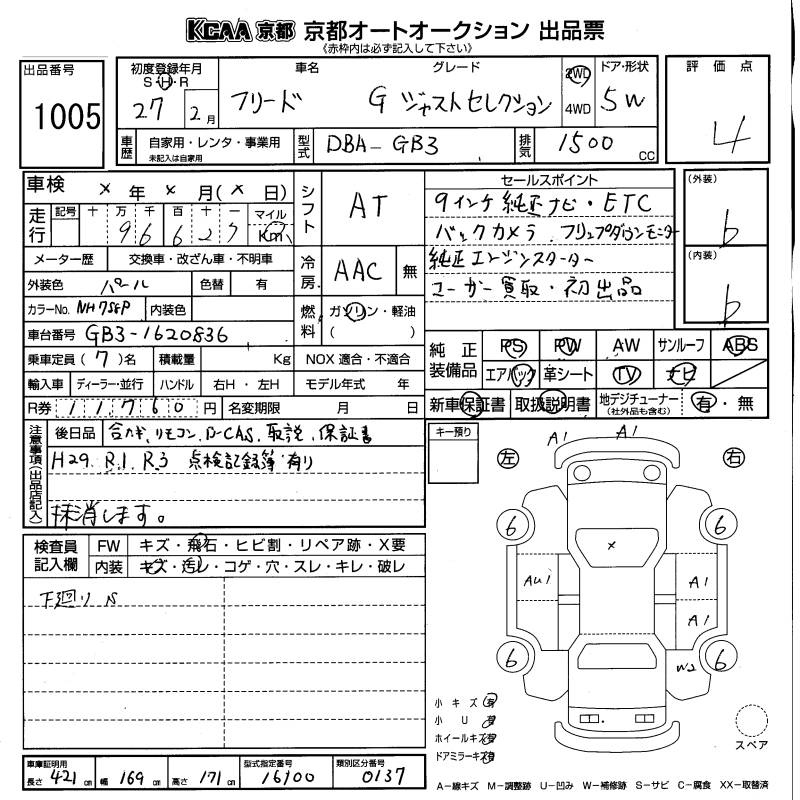 KCAA 京都 京都オートオークション 出品票
《赤枠内は必ず記入して下さい》
出品番号
1005
初度登録年月
S・H・R
27 2月
車名
フリード
グレード
G ジャストセレクション
2WD
4WD
ドア・形状
5W
評価点
4
車歴
自家用・レンタ・事業用
未記入は自家用
型式
DBA-GB3
排気
1500 CC
車検 × 年 × 月(× 日)
走行
記号 十 万 千 百 十 一 マイル
9 6 6 2 7 Km
メーター歴 交換車・改ざん車・不明車
外装色 パール 色替 有
カラーNo. NH788P 内装色
車台番号 GB3-1620836
乗車定員(7)名 積載量 Kg
輸入車 ディーラー・並行 ハンドル 右H・左H
R券 11760円 名変期限 月 日
シフト AT
冷房 AAC 無
燃料 ガソリン・軽油
( )
NOX 適合・不適合
モデル年式 年
セールスポイント
9インチ純正ナビ・ETC
バックカメラ フリップダウンモニター
純正エンジンスターター
ユーザー買取・初出品
(外装)
b
(内装)
b
純正装備品
PS PW AW サンルーフ ABS
エアバック 革シート TV ナビ
新車保証書 取扱説明書 地デジチューナー (社外品も含む) 有・無
注意事項(出品店記入)
後日品 合カギ、リモコン、B-CAS、取説、保証書
H29. R.1. R.3 点検記録簿有り
抹消します。
キー預り
検査員記入欄
FW キズ・飛石・ヒビ割・リペア跡・X要
内装 キズ・汚レ・コゲ・穴・スレ・キレ・破レ
下廻り S
左 右
A1 A1
6 6
×
AU1 A1
A1
6 6
W2
小キズ 有
小U 有
ホイールキズ 有
ドアミラーキズ 有
スペア
車庫証明用
長さ 421cm 幅 169cm 高さ 171cm
型式指定番号
16100
類別区分番号
0137
A−線キズ M−調整跡 U−凹み W−補修跡 S−サビ C−腐食 XX−取替済